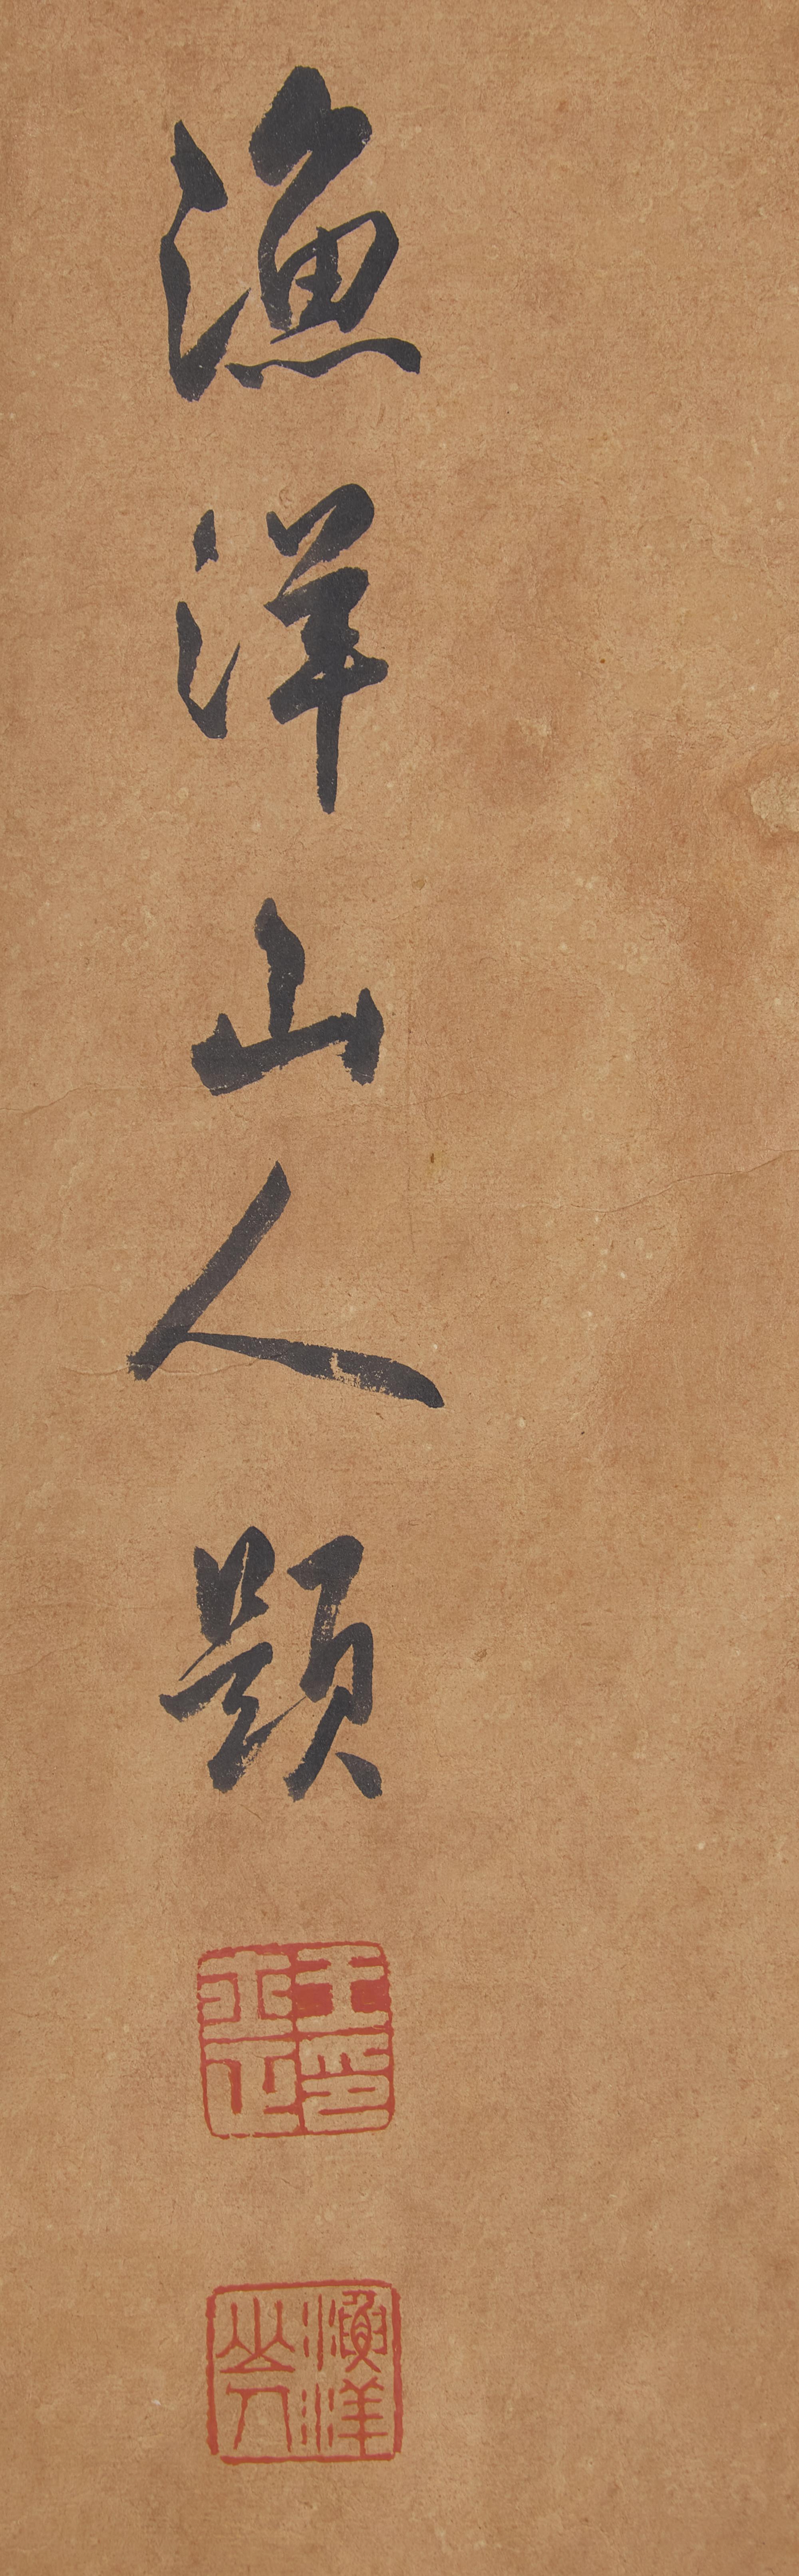 漁洋山人題
王士正印
漁洋山人